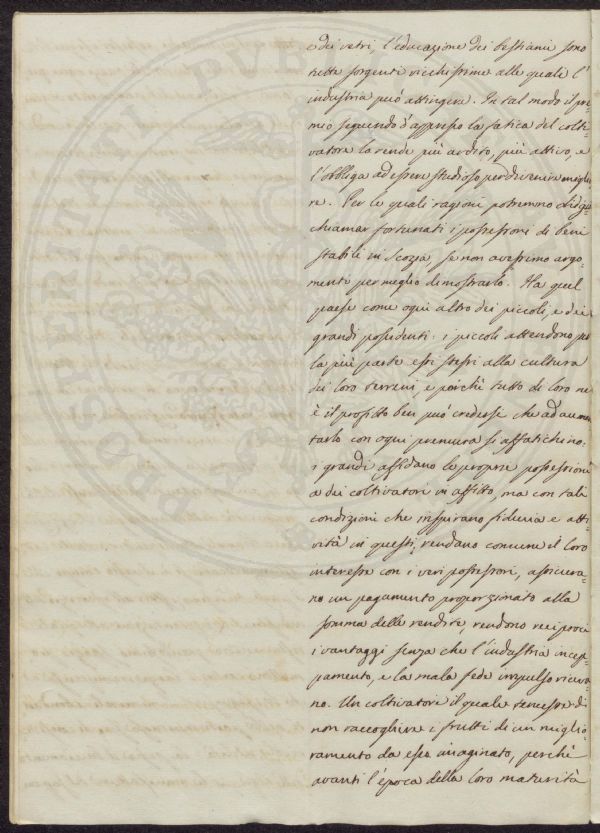 o dei vetri, l'educazione dei bestiami sono
tutte sorgenti ricchissime alle quali l'
industria può attingere. In tal modo il pre-
mio seguendo d'appresso la fatica del colti-
vatore la rende più ardito, più attivo, e
l'obbliga ad essere studioso per divenire miglio-
re. Per le quali ragioni potremno
chiamar fortunati i possessori di beni
stabili in Scozia, se non avessimo argo-
menti per meglio dimostrarlo. Ha quel
paese come ogni altro dei piccoli, e dei
grandi possidenti: i piccoli attendono per
la più parte essi stessi alla cultura
dei loro terreni, e poichè tutto di loro ne
è il profitto ben può credersi che ad aumen-
tarlo con ogni premura si affatichino:
i grandi affidano le proprie possessioni
a dei coltivatori in affitto, ma con tali
condizioni che inspirano fiducia e atti-
vità in questi, rendano comune il loro
interesse con i veri possessori, assicura-
no un pagamento proporzionato alla
somma delle rendite, rendono reciproci
i vantaggi senza che l'industria incep-
pamento, e la mala fede impulso riceva-
no. Un coltivatore il quale temesse di
non raccogliere i frutti di un miglio-
ramento da esso imaginato, perchè
avanti l'epoca della loro maturità
PROSPERITATI PUBLICAE